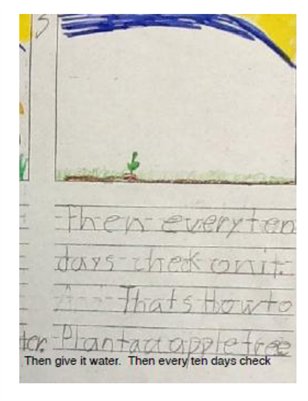 5
Then every ten
days check on it.
Thats How to
ter. Plant a apple tree
Then give it water. Then every ten days check